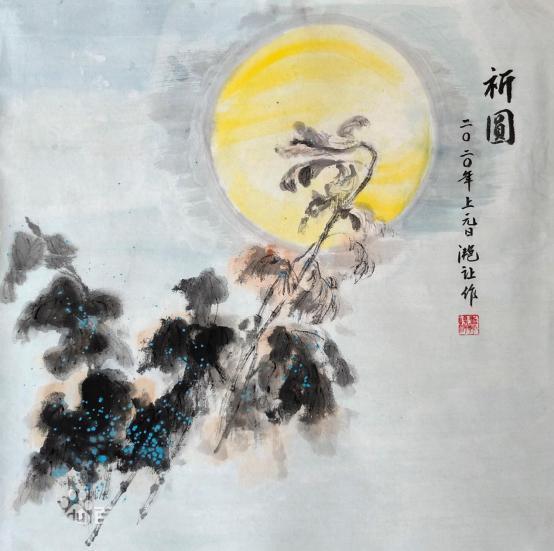 祈圓
二〇二〇年上元日滟让作